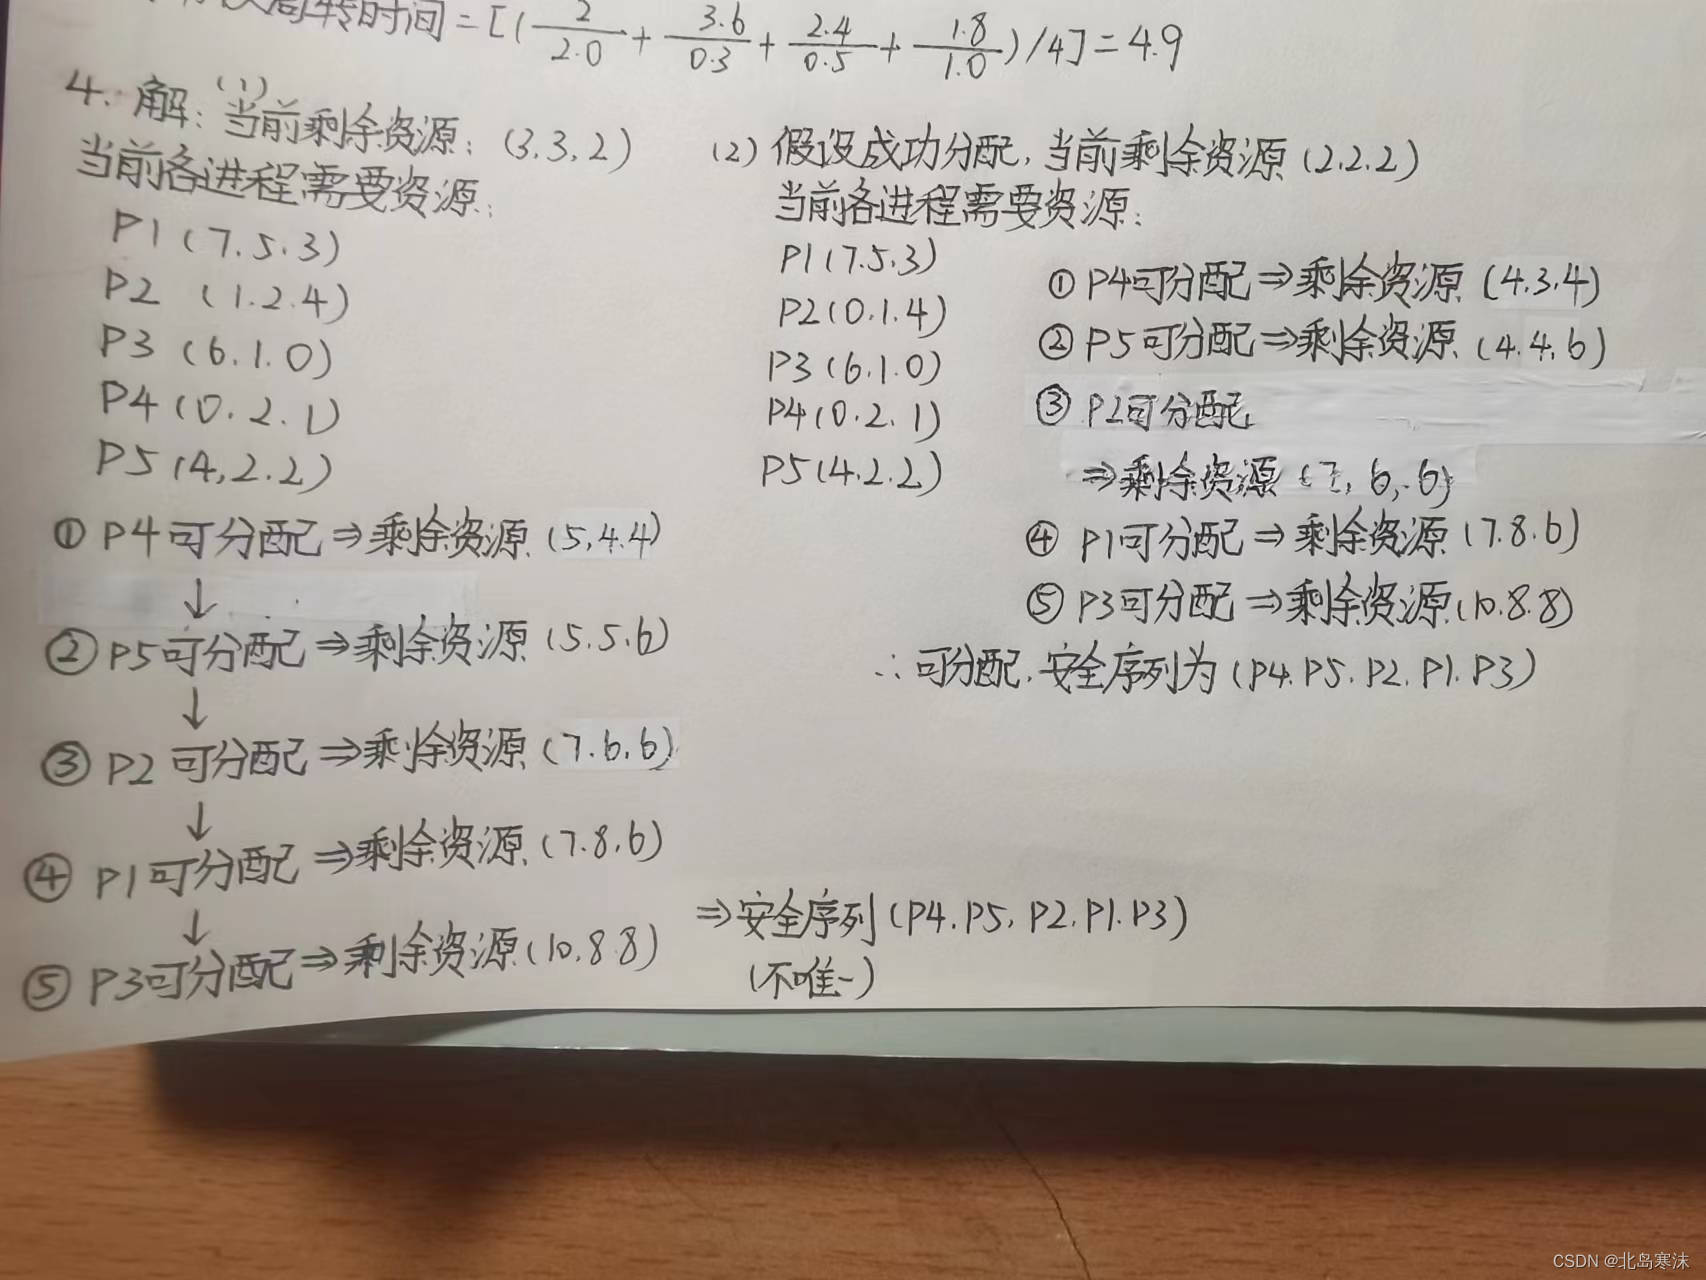 周转时间 = [(2/2.0 + 3.6/0.3 + 2.4/0.5 + 1.8/1.0)/4] = 4.9
4. 解: (1) 当前剩余资源: (3.3.2)
当前各进程需要资源:
P1 (7.5.3)
P2 (1.2.4)
P3 (6.1.0)
P4 (0.2.1)
P5 (4,2.2)
① P4 可分配 ⇒ 剩余资源 (5,4.4)
↓
② P5 可分配 ⇒ 剩余资源 (5.5.6)
↓
③ P2 可分配 ⇒ 剩余资源 (7.6.6)
↓
④ P1 可分配 ⇒ 剩余资源 (7.8.6)
↓
⑤ P3 可分配 ⇒ 剩余资源 (10.8.8)
⇒ 安全序列 (P4.P5.P2.P1.P3)
(不唯一)
(2) 假设成功分配, 当前剩余资源 (2.2.2)
当前各进程需要资源:
P1 (7.5.3)
P2 (0.1.4)
P3 (6.1.0)
P4 (0.2.1)
P5 (4.2.2)
① P4可分配 ⇒ 剩余资源 (4.3.4)
② P5可分配 ⇒ 剩余资源 (4.4.6)
③ P2可分配
⇒ 剩余资源 (7,6,6)
④ P1可分配 ⇒ 剩余资源 (7.8.6)
⑤ P3可分配 ⇒ 剩余资源 (10.8.8)
∴ 可分配, 安全序列为 (P4.P5.P2.P1.P3)
CSDN @北岛寒沫